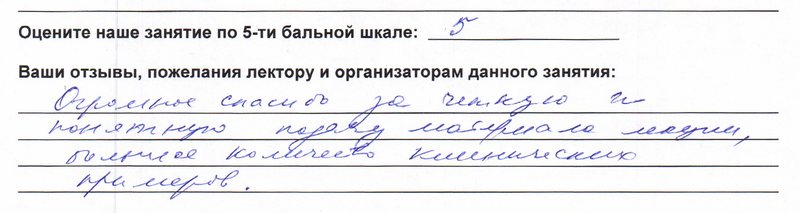 Оцените наше занятие по 5-ти бальной шкале: 5
Ваши отзывы, пожелания лектору и организаторам данного занятия:
Огромное спасибо за четкую и
понятную подачу материала лекции,
большое количество клинических
примеров.